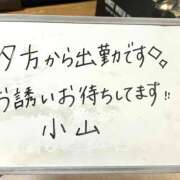 夕方から出勤です◇。
お誘いお待ちしてます!!
小山